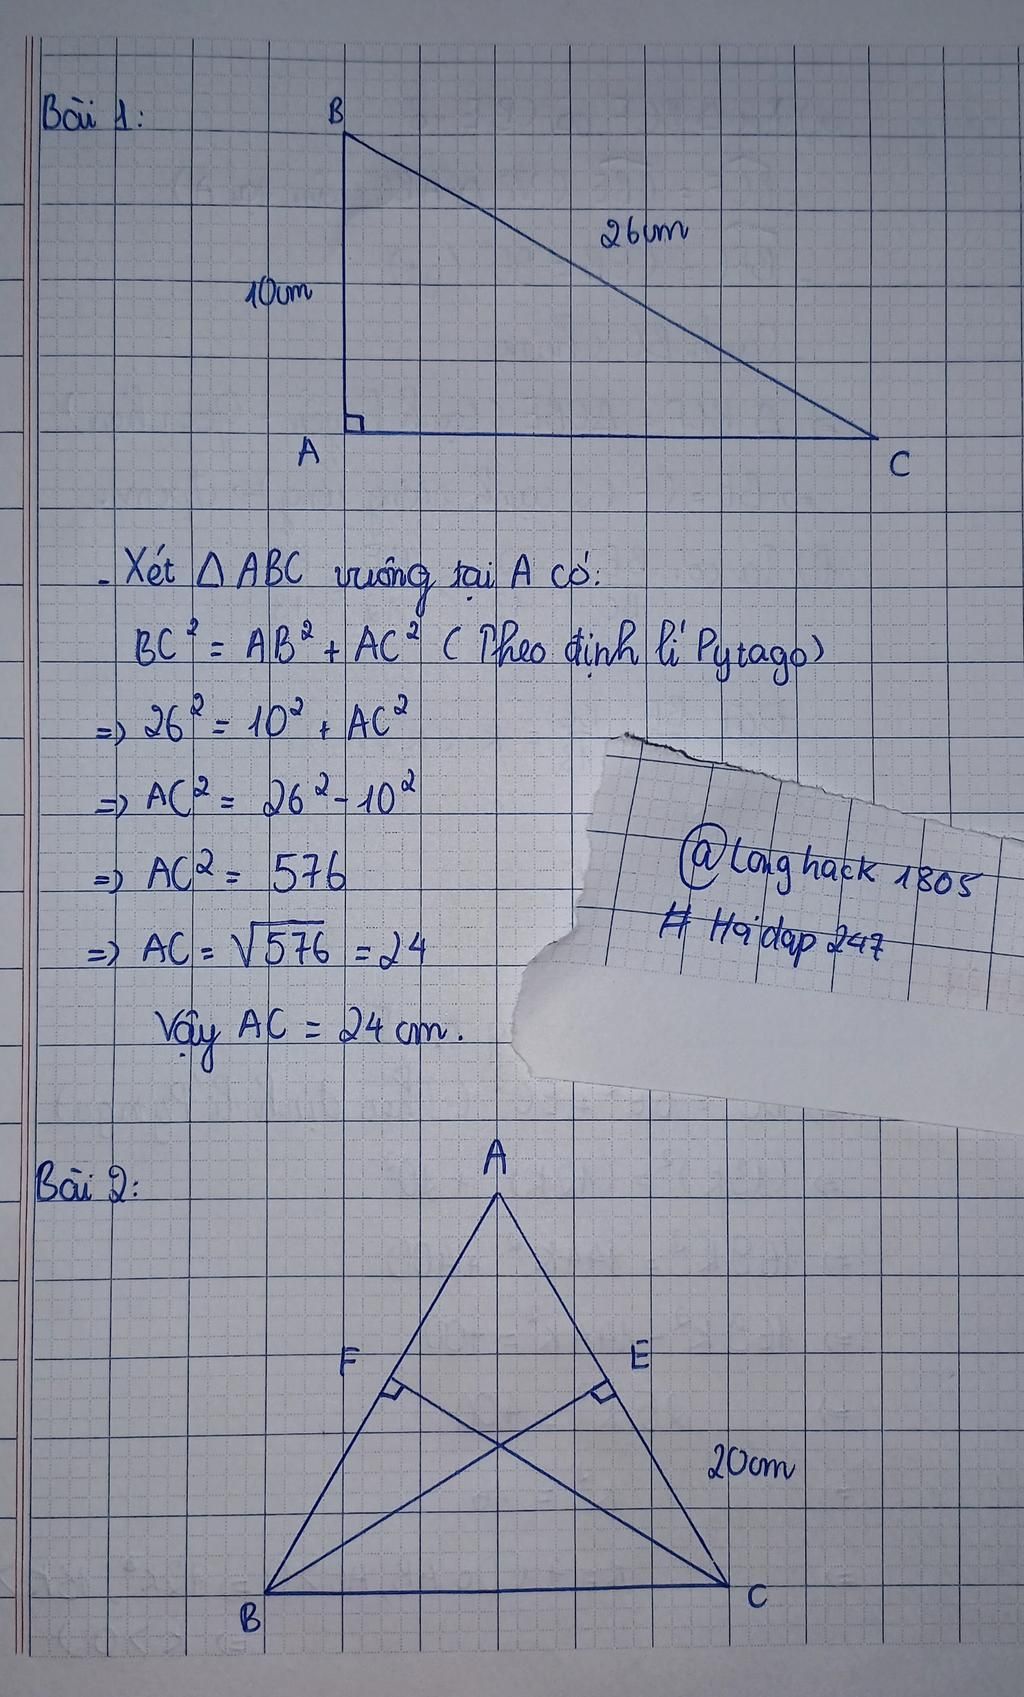 Bài 1:
B
26cm
10cm
A
C
- Xét △ ABC vuông tại A có:
BC² = AB² + AC² (Theo định lí Pytago)
=> 26² = 10² + AC²
=> AC² = 26² - 10²
=> AC² = 576
=> AC = √576 = 24
Vậy AC = 24 cm.
@Longhack 1805
# Hoidap 247
Bài 2:
A
F
E
20cm
B
C